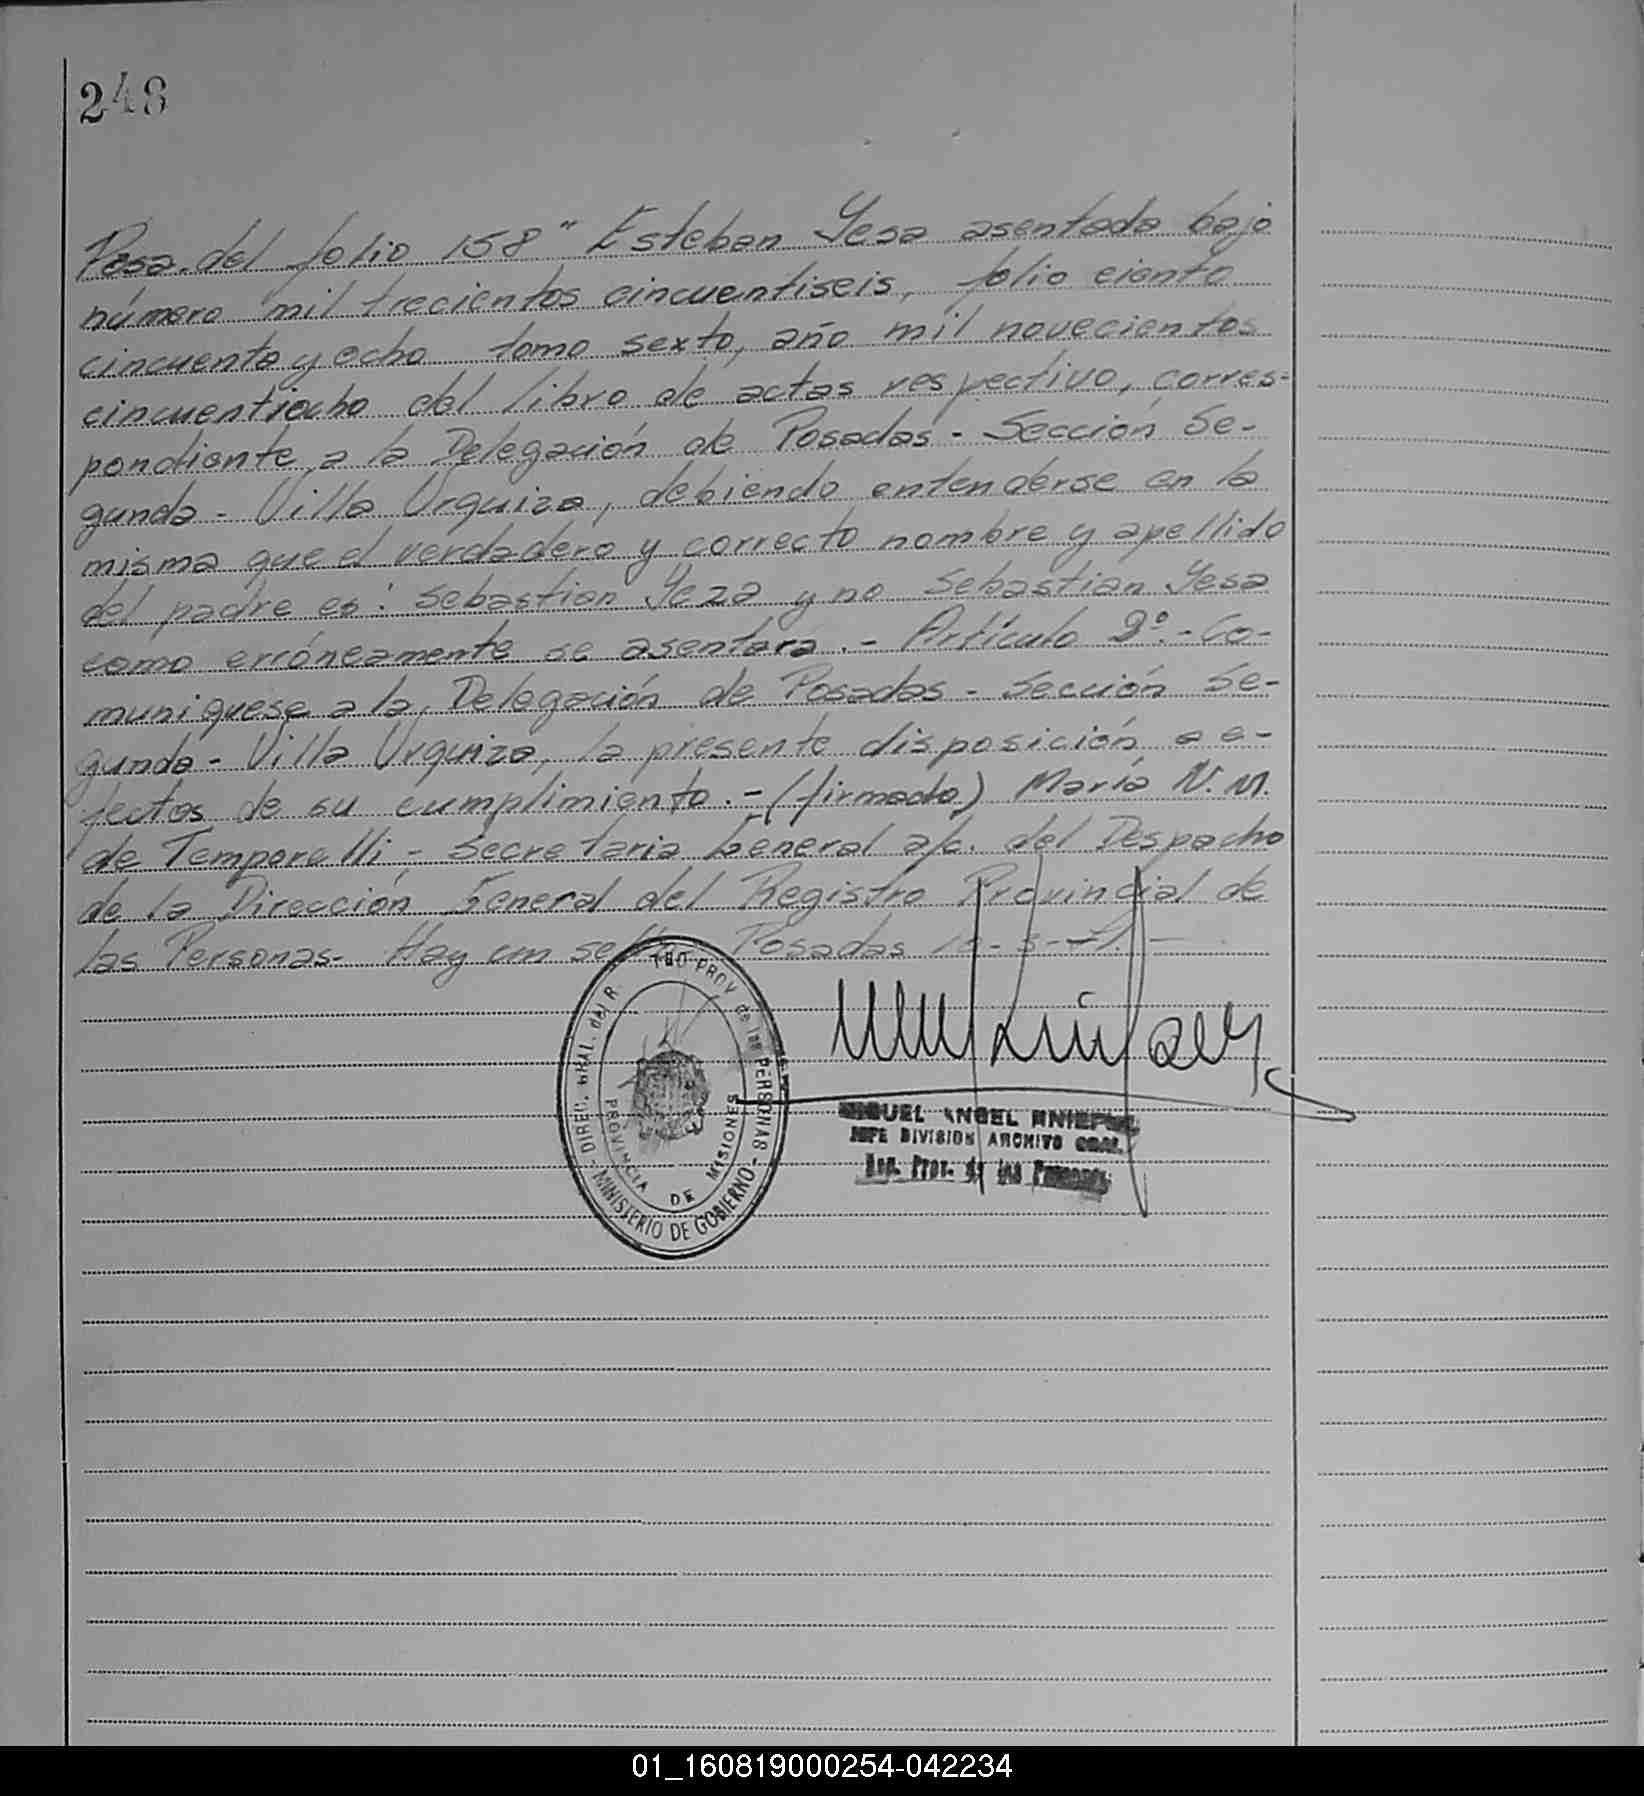 248
Pasa del folio 158" Esteban Yesa asentada bajo
número mil trecientos cincuentiseis, folio ciento
cincuenta y ocho tomo sexto, año mil novecientos
cincuentiocho del libro de actas respectivo, corres-
pondiente a la Delegación de Posadas - Sección Se-
gunda - Villa Urquiza, debiendo entenderse en la
misma que el verdadero y correcto nombre y apellido
del padre es: Sebastian Yeza y no Sebastian Yesa
como erróneamente se asentara.- Artículo 2º.- Co-
muniquese a la Delegación de Posadas - Sección Se-
gunda - Villa Urquiza, la presente disposición a e-
fectos de su cumplimiento.- (firmado) María N. M.
de Temporelli - Secretaria General a/c. del Despacho
de la Dirección General del Registro Provincial de
las Personas- Hay un sello Posadas
DIREC. GRAL. del R. PROV de las PERSONAS
MINISTERIO DE GOBIERNO
PROVINCIA DE MISIONES
MIGUEL ANGEL
JEFE DIVISION ARCHIVO GRAL.
Reg. Prov. de las Personas
01_160819000254-042234